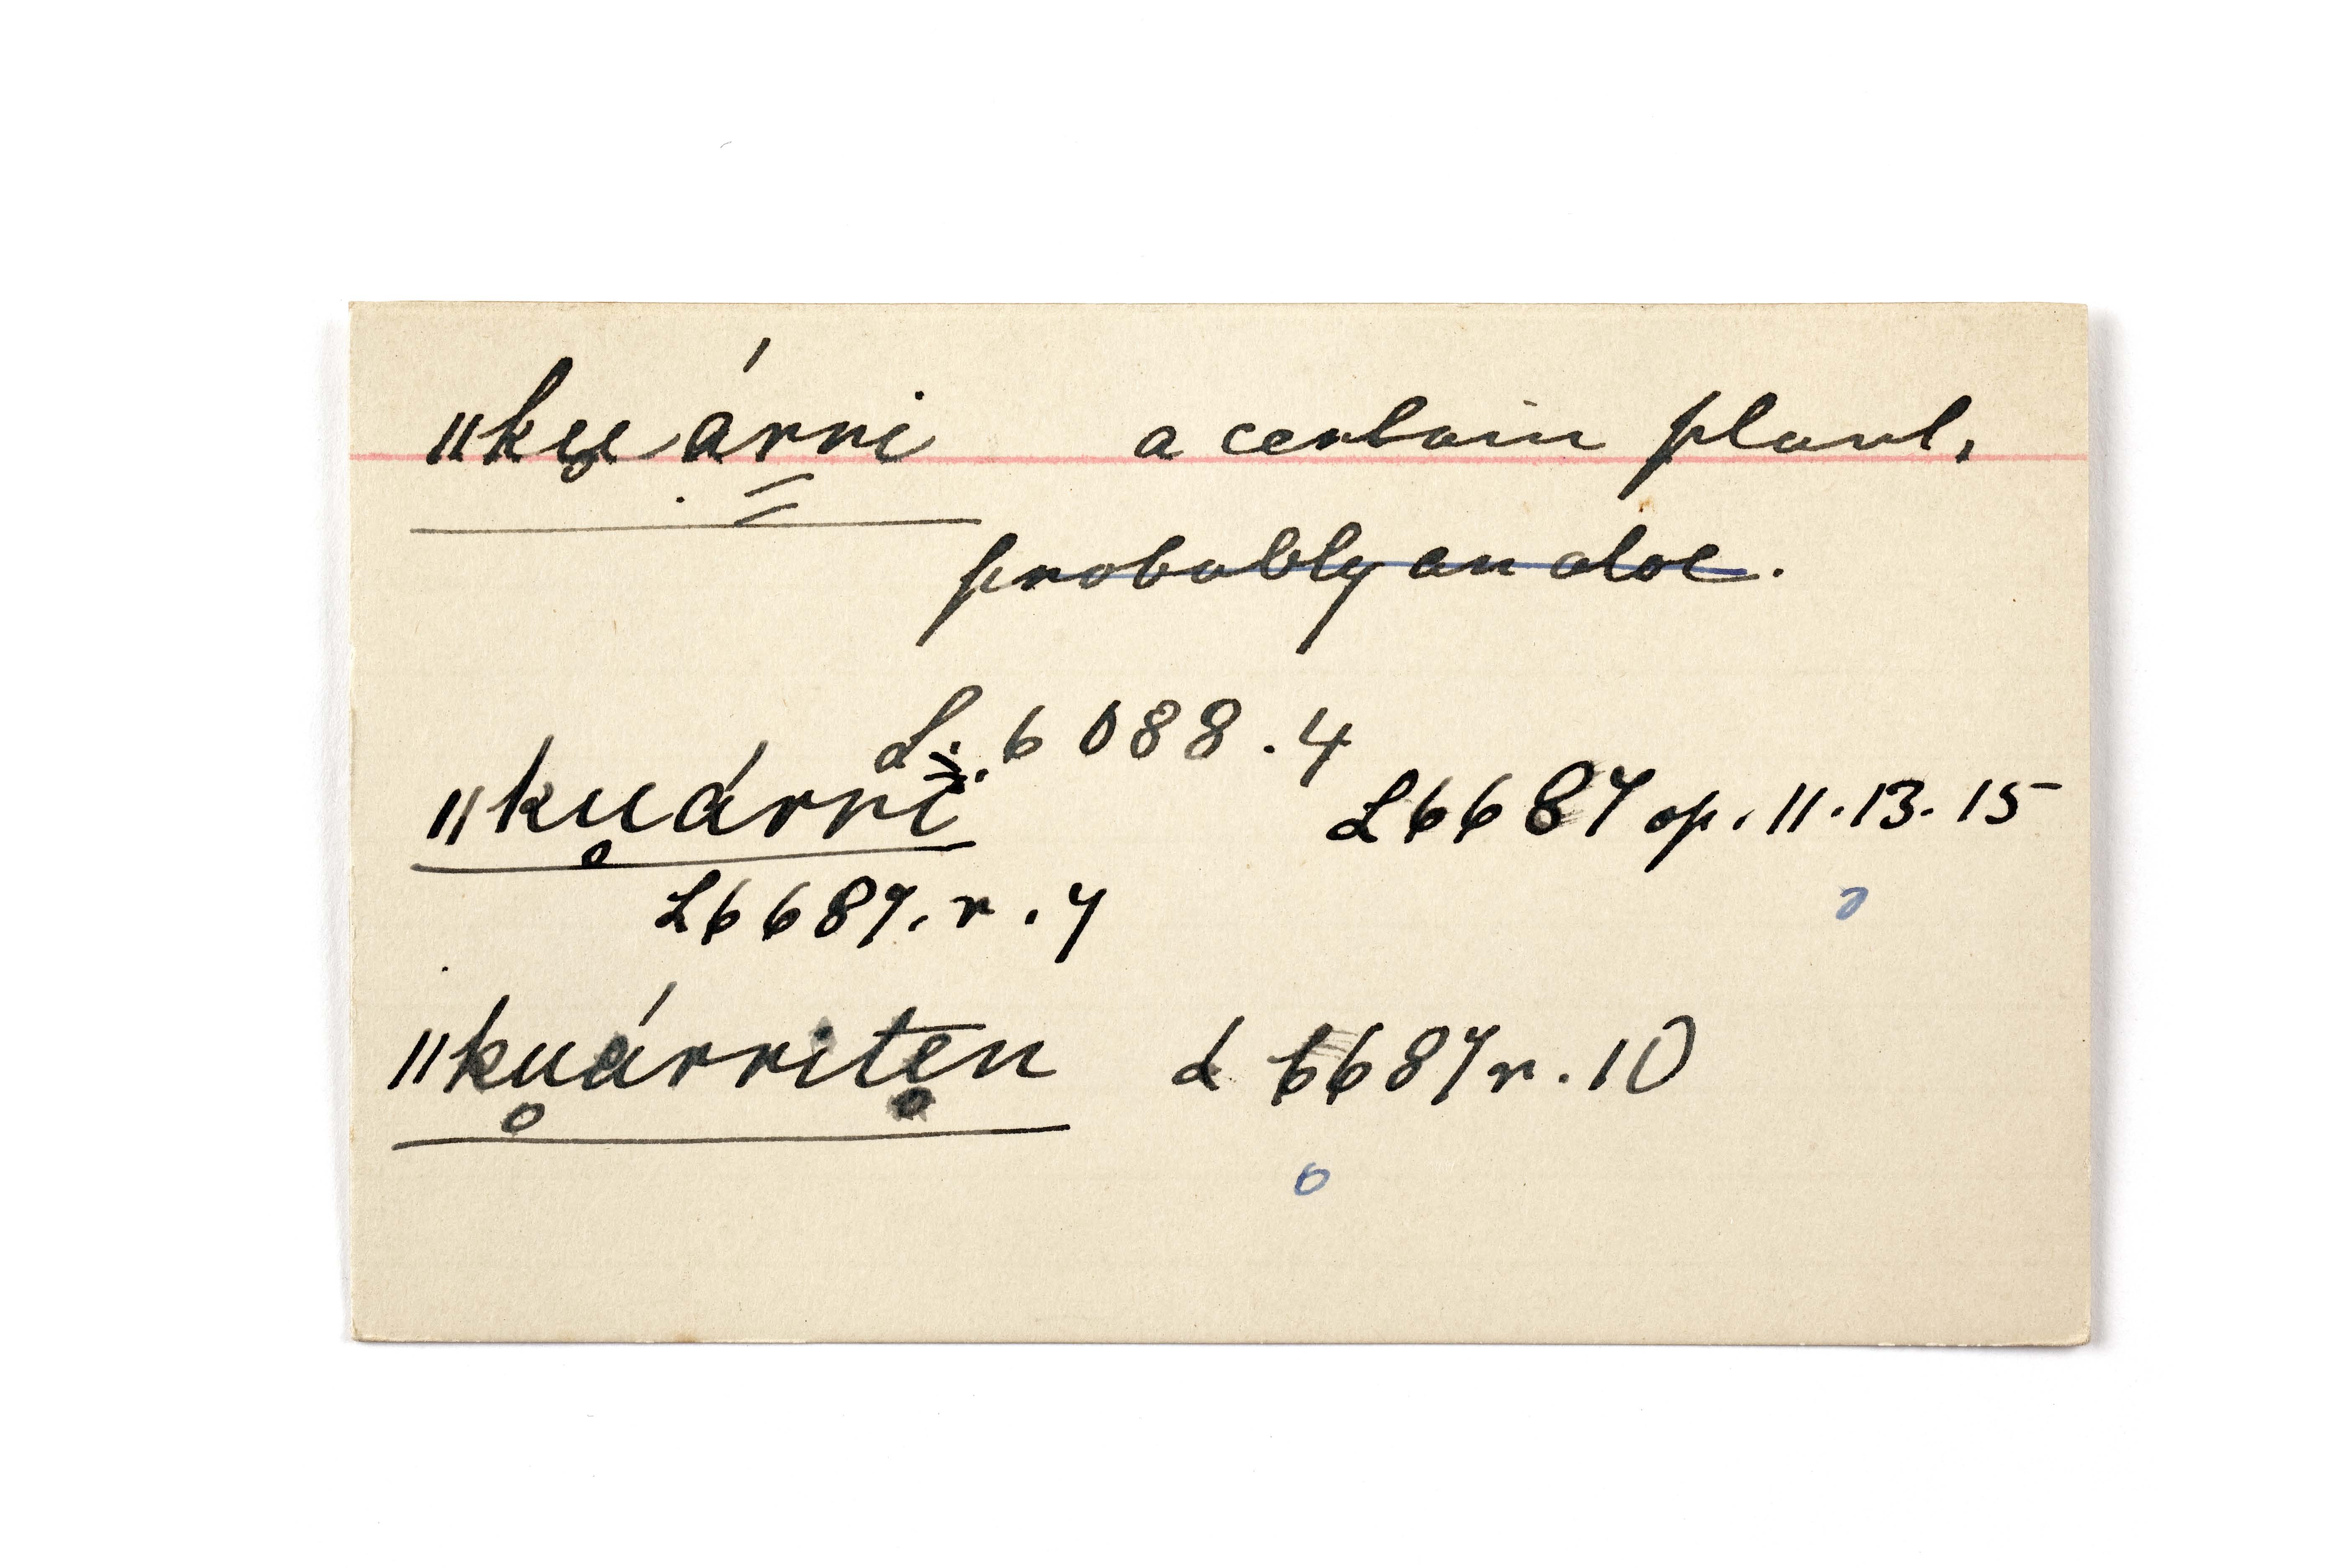 ǁku̥árri a certain plant,
probably an aloe.
L. 6088.4
ǁku̥árrĭ L6687 op. 11.13.15
L6687.r.7
ǁku̥árrite̥n L 6687r.10